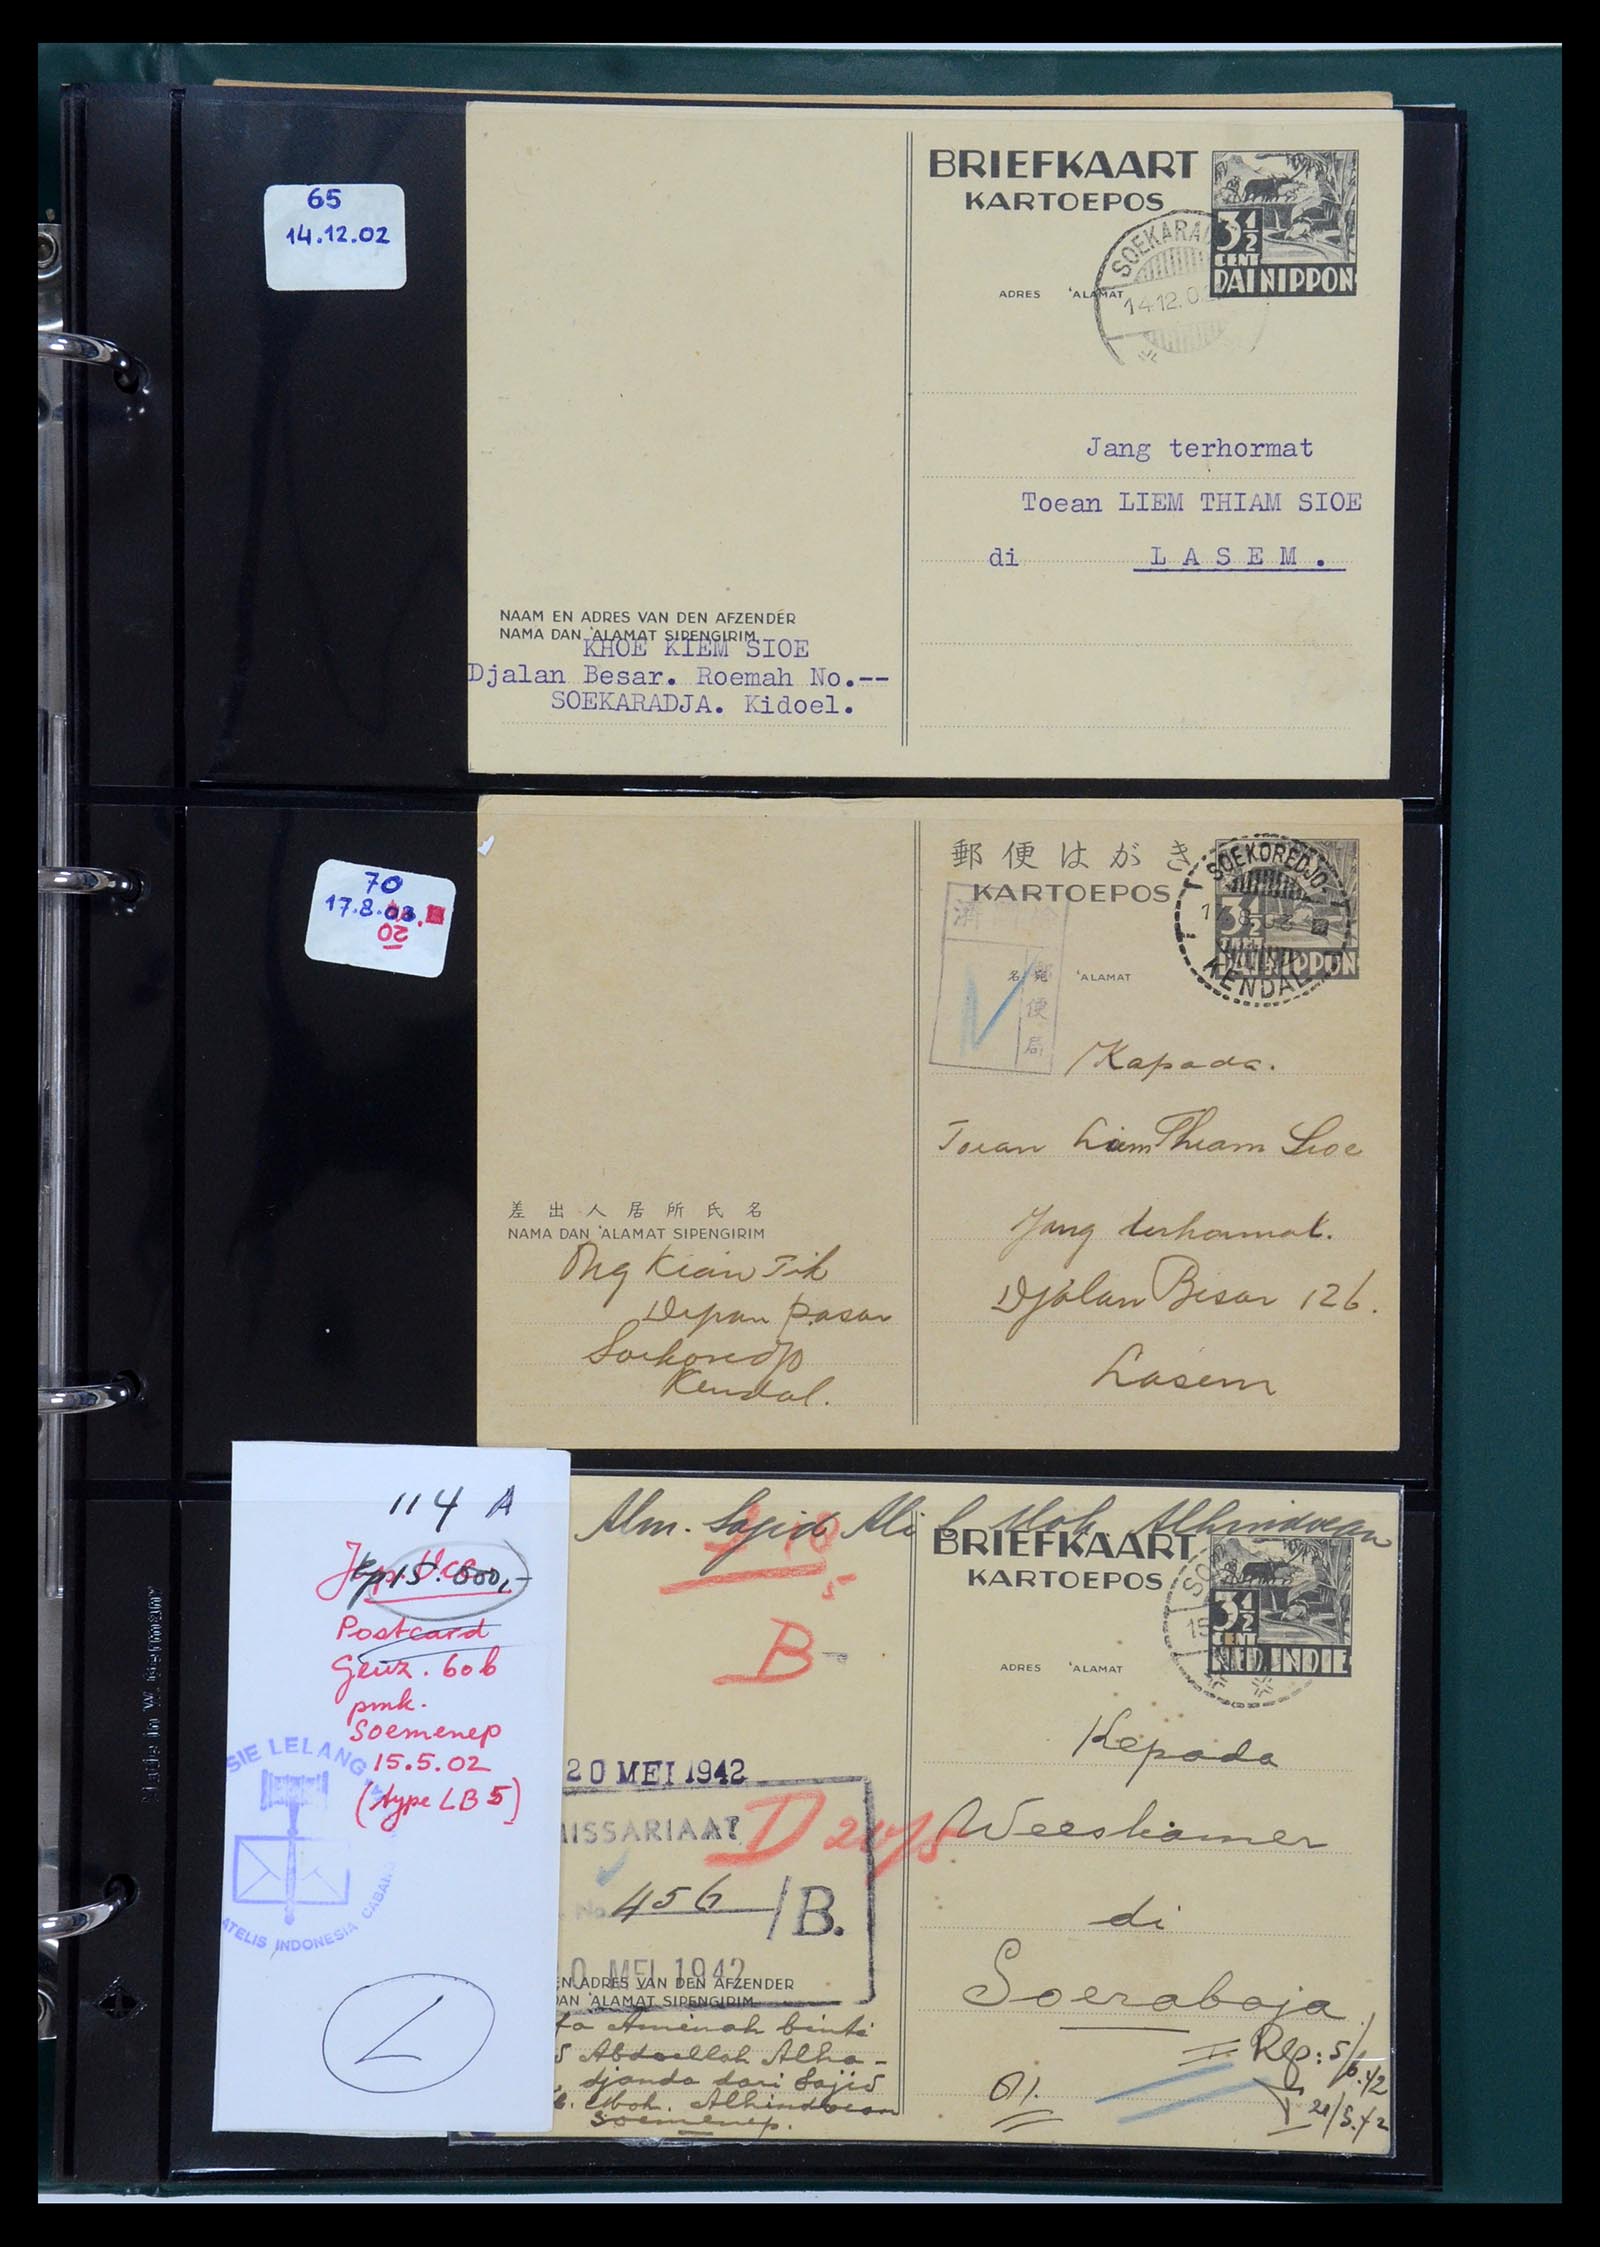 65
14.12.02
BRIEFKAART
KARTOEPOS
3½
CENT
DAI NIPPON
SOEKARA
14.12.0
ADRES 'ALAMAT
Jang terhormat
Toean LIEM THIAM SIOE
di L A S E M .
NAAM EN ADRES VAN DEN AFZENDER
NAMA DAN 'ALAMAT SIPENGIRIM
KHOE KIEM SIOE
Djalan Besar. Roemah No.--
SOEKARADJA. Kidoel.
70
17.8.03.
20
郵便はがき
KARTOEPOS
3½
CENT
DAI NIPPON
SOEKOREDJO
KENDAL
済
郵便局
名宛 'ALAMAT
Kapada.
Toean Liem Thiam Sioe
Jang terhormat.
Djalan Besar 126.
Lasem
差出人居所氏名
NAMA DAN 'ALAMAT SIPENGIRIM
Ong Kian Tik
Depan pasar
Soekoredjo
Kendal.
114 A
Rp 15.500,-
Postcard
Geuz. 60b
pmk.
Soemenep
15.5.02
(type LB 5)
SIE LELANG
ATELIS INDONESIA CABAN
L
Alm. Sajid Ali b. Moh. Alhindoean
BRIEFKAART
KARTOEPOS
3½
CENT
NED. INDIE
SO
15
ADRES 'ALAMAT
5
B
20 MEI 1942
MISSARIAAT
D
No. 456 /B.
0 MEI 1942
EN ADRES VAN DEN AFZENDER
DAN 'ALAMAT SIPENGIRIM
Aminah binti
Abdoellah Alha-
djanda dari Sajid
b. Moh. Alhindoean
Soemenep.
Kepada
Weeskamer
di
Soerabaja
Rep: 5/6.42
21/5.42